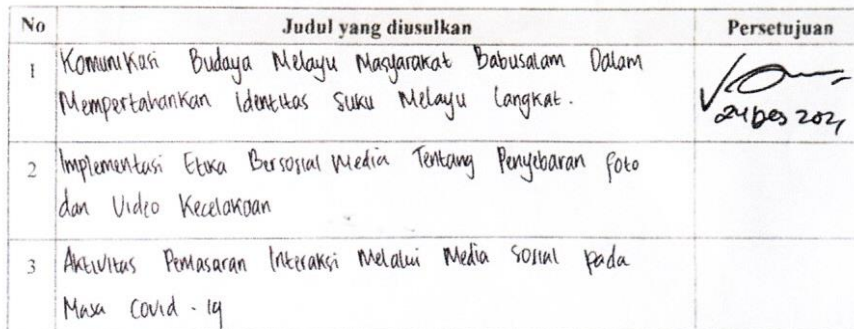 No Judul yang diusulkan Persetujuan
1 Komunikasi Budaya Melayu Masyarakat Babusalam Dalam
Mempertahankan identitas Suku Melayu Langkat.
24 Des 2021
2 Implementasi Etika Bersosial Media Tentang Penyebaran foto
dan Video Kecelakaan
3 Aktivitas Pemasaran Interaksi Melalui Media Sosial pada
Masa Covid - 19